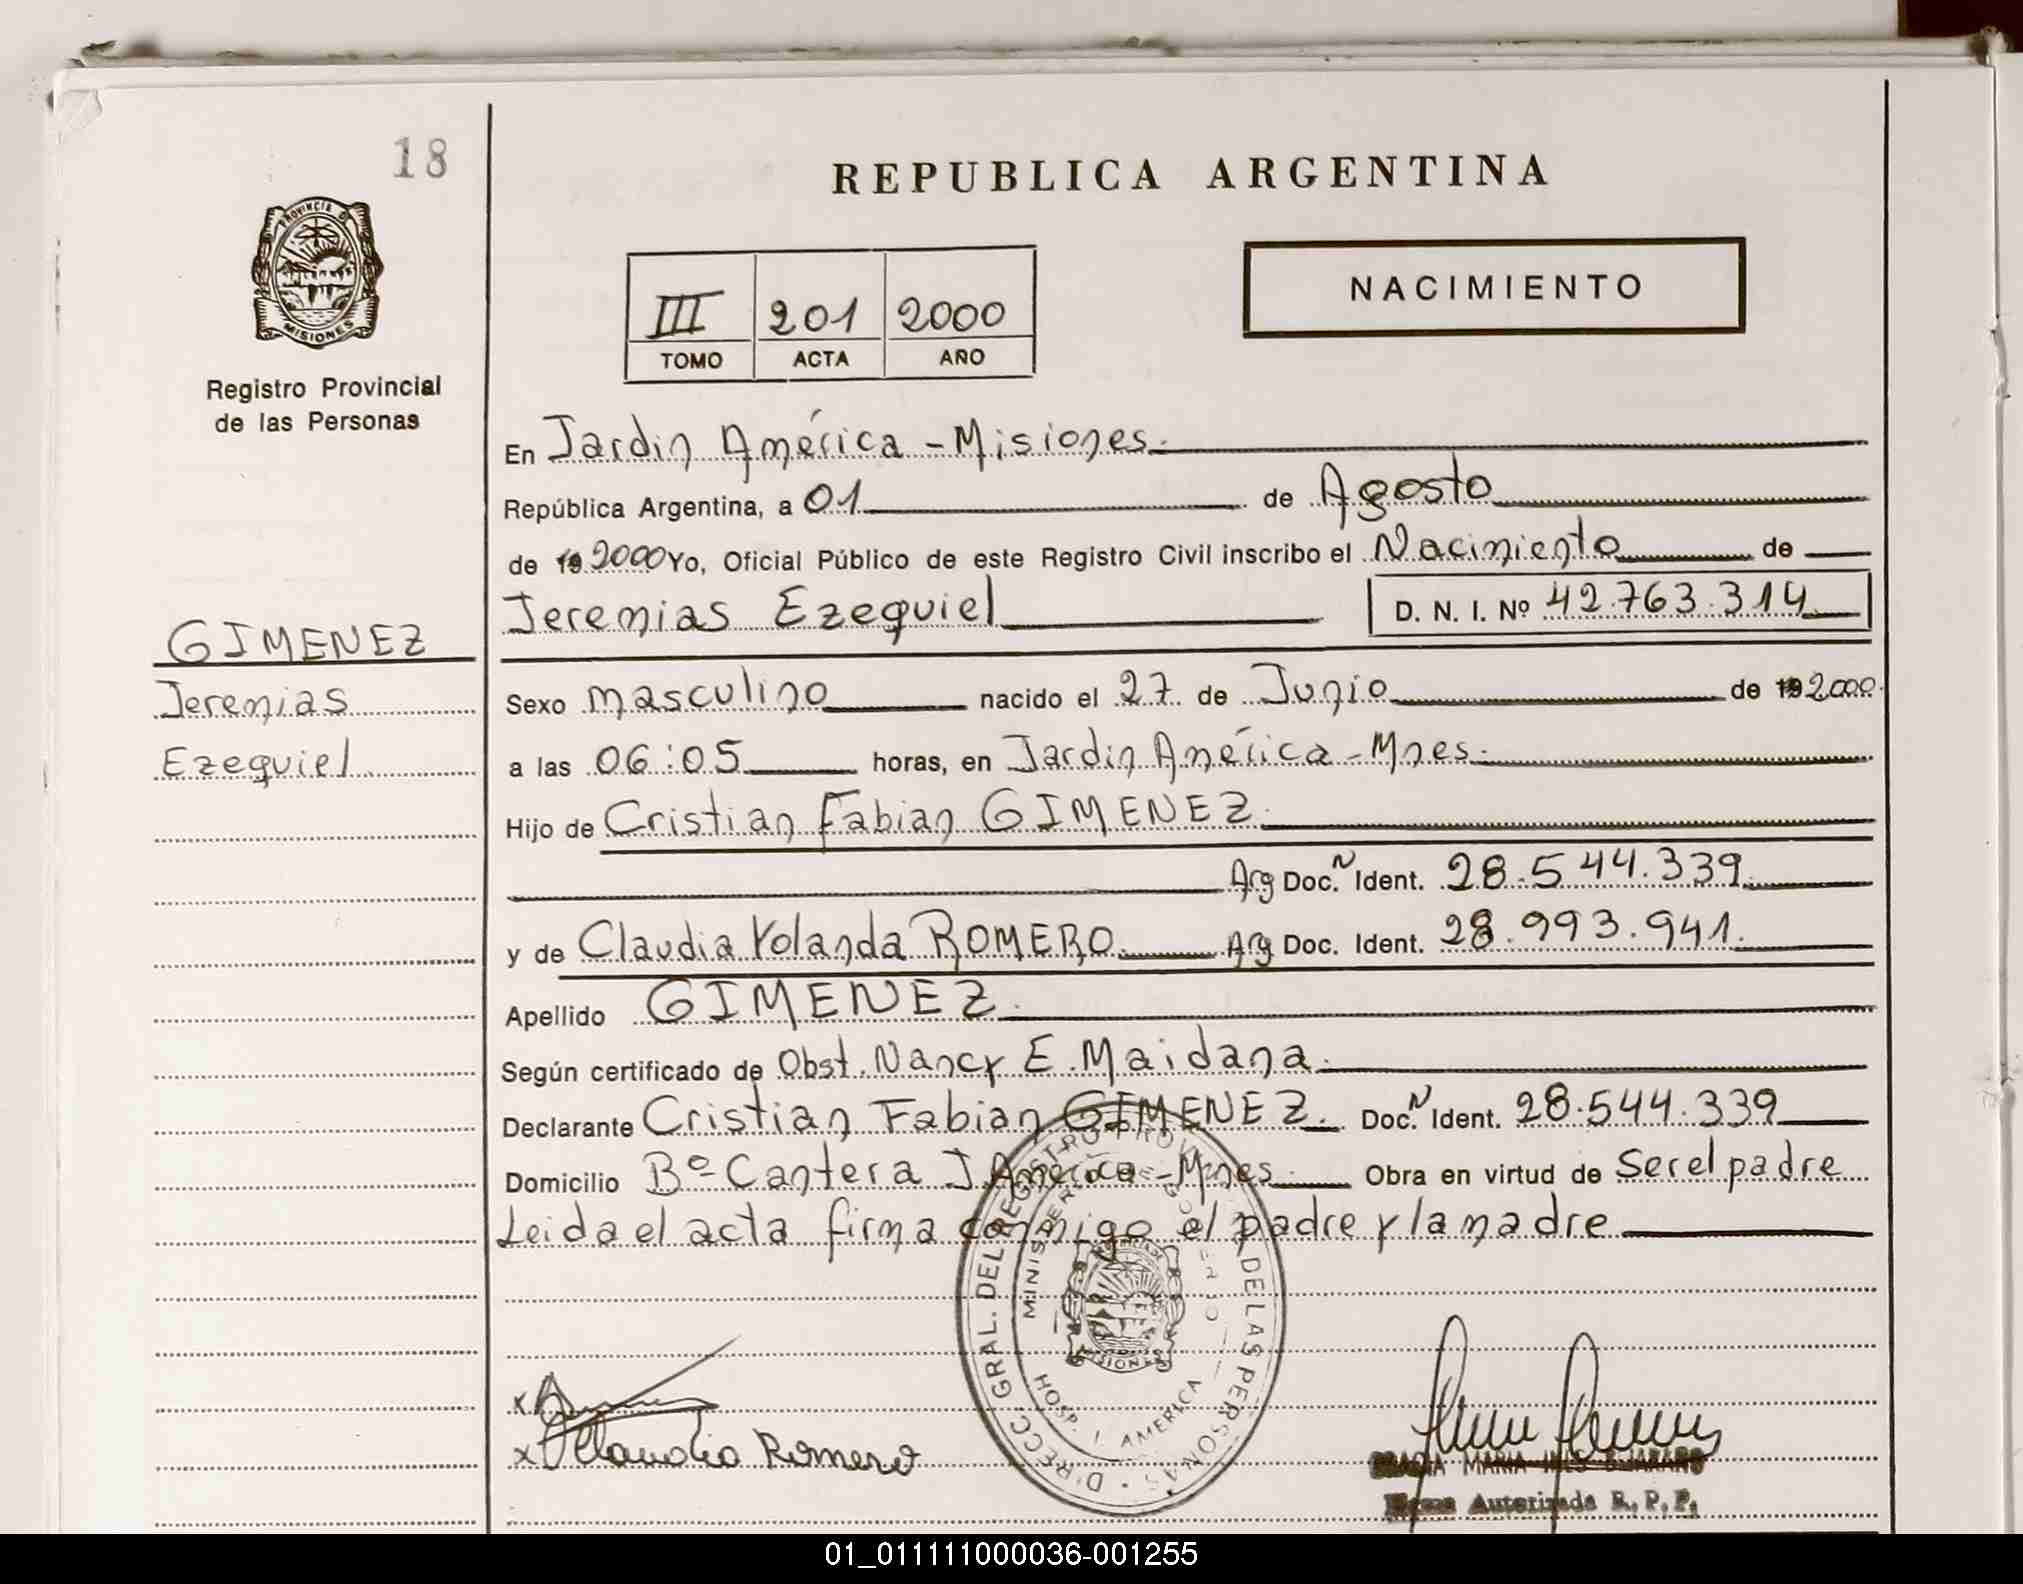 18
REPUBLICA ARGENTINA
PROVINCIA DE
MISIONES
Registro Provincial
de las Personas
NACIMIENTO
III 201 2000
TOMO ACTA AÑO
En Jardin América - Misiones.
República Argentina, a 01 de Agosto
de 19 2000 Yo, Oficial Público de este Registro Civil inscribo el Nacimiento de
Jeremias Ezequiel D. N. I. Nº 42.763.314
GIMENEZ
Jeremias
Ezequiel
Sexo masculino nacido el 27 de Junio de 19 2000
a las 06:05 horas, en Jardin América - Mnes.
Hijo de Cristian Fabian GIMENEZ.
Arg Doc. N Ident. 28.544.339
y de Claudia Yolanda ROMERO Arg Doc. Ident. 28.993.941.
Apellido GIMENEZ.
Según certificado de Obst. Nancy E. Maidana.
Declarante Cristian Fabian GIMENEZ. Doc. N Ident. 28.544.339
Domicilio Bº Cantera J. América - Mnes. Obra en virtud de Ser el padre
Leida el acta firma conmigo el padre y la madre
DIRECC. GRAL. DEL REGISTRO PROV. DE LAS PERSONAS
MINISTERIO DE GOBIERNO
MISIONES
HOSP. J. AMERICA
x
x Claudia Romero
MARIA INES
Autorizada R. P. P.
01_011111000036-001255